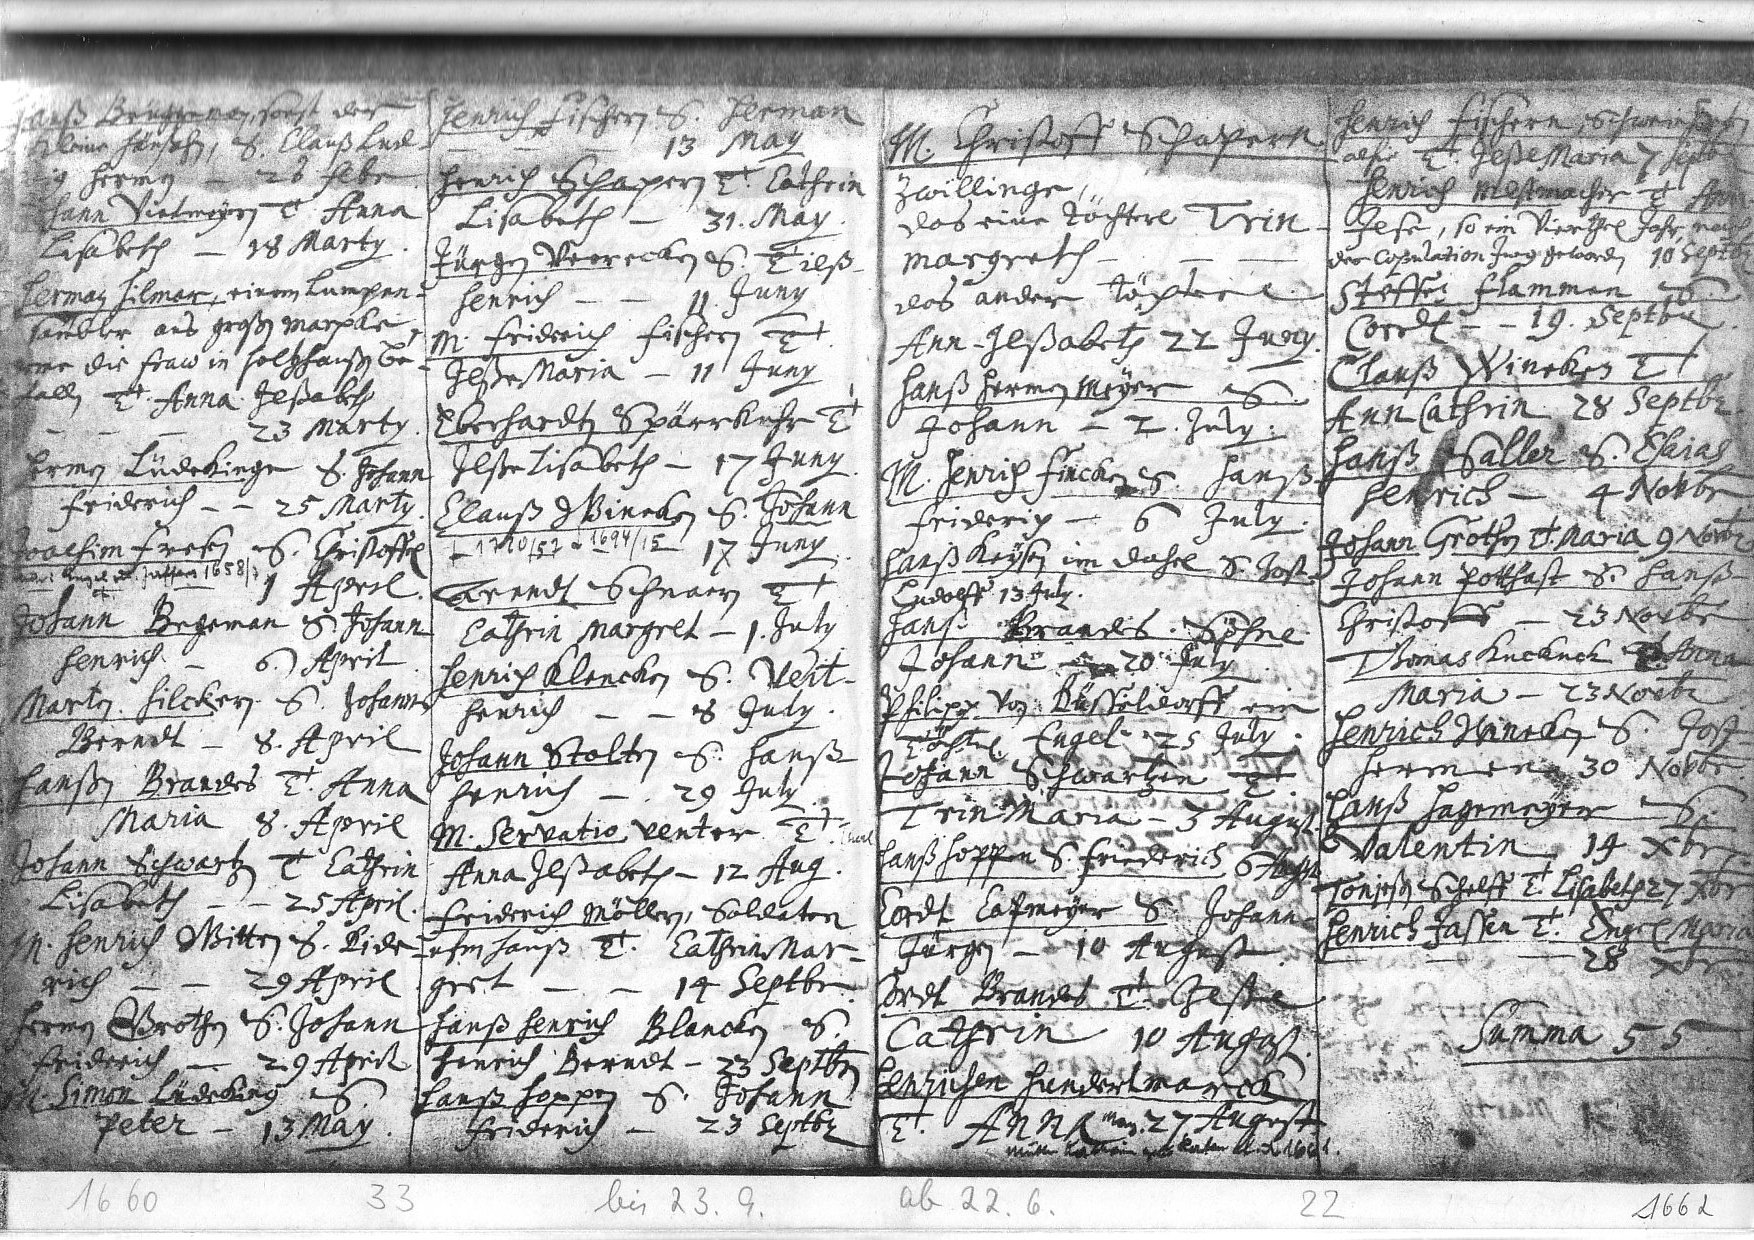 Hanß Brüggeman, sonst der
kleine Hänsch, S. Clauß Lud-
ig Hermen — 26 Febr.
Johann Vietmeyer T. Anna
Lisabeth — 18 Marty.
Herman Hilmar, einem Lumpen-
samler aus großen Marpke
die fraw in Holtzhaußen
T. Anna Ilßabeth
— — — 23 Marty.
Hermen Lüdekinge S. Johann
Friderich — — 25 Marty.
Joachim Freken S. Christoffel
1 April.
Johann Begeman S. Johann
Henrich. — 6. April
Marten Hilcker S. Johann
Berndt — 8. April
Hanßen Brandes T. Anna
Maria 8. April
Johann Schwartz T. Cathrin
Lisabeth — — 25 April.
M. Henrich Witten S. Ride-
rich — — 29 April.
Hermen Grothen S. Johann
Friderich — 29 April
M. Simon Lüdeking S.
Peter — 13 May.
Henrich Fischern S. Herman
— — — 13 May
Henrich Schapern T. Cathrin
Lisabeth — 31. May.
Jürgen Veerecken S. Tilß-
Henrich — — 11 Juny
M. Friderich Fischern T.
Ilße Maria — 11 Juny
Eberhardt Spärrkuhr T.
Ilße Lisabeth — 17 Juny.
Clauß Wineken S. Johann
1710/57 1694/15 17 Juny
Arendt Schnaer T.
Cathrin Margret — 1. July
Henrich Klencken S. Veit-
Henrich — — 8 July.
Johann Stolten S. Hanß
Henrich — . 29 July.
M. Servatio Venter T.
Anna Ilßabeth — 12 Aug.
Friderich Möllern, Soldaten
Hanß T. Cathrin Mar-
gret — — 14 Septbr.
Hanß Henrich Blancken S.
Henrich Berndt — 23 Septbr
Hanß Hoppen S. Johann
Friderich — 23 Septbr
M. Christoff Schapern
Zwillinge,
das eine Töchterl Trin-
margreth — — —
das ander Töchterl.
Ann-Ilßabeth 22 Juny.
Hanß Hermen Meyer S.
Johann — 2. July.
M. Henrich Fincken S. Hanß-
Friderich — 6 July.
Hanß Keysen im Dahel S. Jost-
Ludolff 13 July.
Hanß Brandes. Söhne
Johann — 20 July
Philipp von Düsseldorff ein
Töchterl. Engel 25 July.
Johann Schwartzen T.
Trin Maria — 3 August.
Hanß Hoppen S. Friederich 6 August
Cordt Catmeyer S. Johann-
Jürgen — 10 August.
Cordt Brandes T. Ilße
Cathrin 10 August.
Henrichen Hundertmarck
T. Anna 27 August
Henrich Fischern, Schweinhirten
alhie T. Ilße Maria 7 Septbr
Henrich Mestmacher T. Ann
Ilse, so ein Viertel Jahr nach
der Copulation Jung geworden 10 Septbr
Steffen Flamman S.
Cordt — — 19. Septbr.
Clauß Wineken T.
Ann Cathrin 28 Septbr.
Hanß Saller S. Esaias
Henrich — 4 Novbr
Johann Grothen T. Maria 9 Novbr
Johann Potthast S. Hanß-
Christoff — 23 Novbr
Thomas Kuckuck T. Anna
Maria — 23 Novbr
Henrich Wineken S. Jost-
Hermen 30 Novbr.
Hanß Hagemeyer S.
Valentin 14 Xbr.
Tönjeß Schelff T. Lisabeth 27 Xbr
Henrich Jassen T. Engel Maria
— — — 28 Xbr
Summa 55
1660 33 bis 23. 9. ab 22. 6. 22 1662